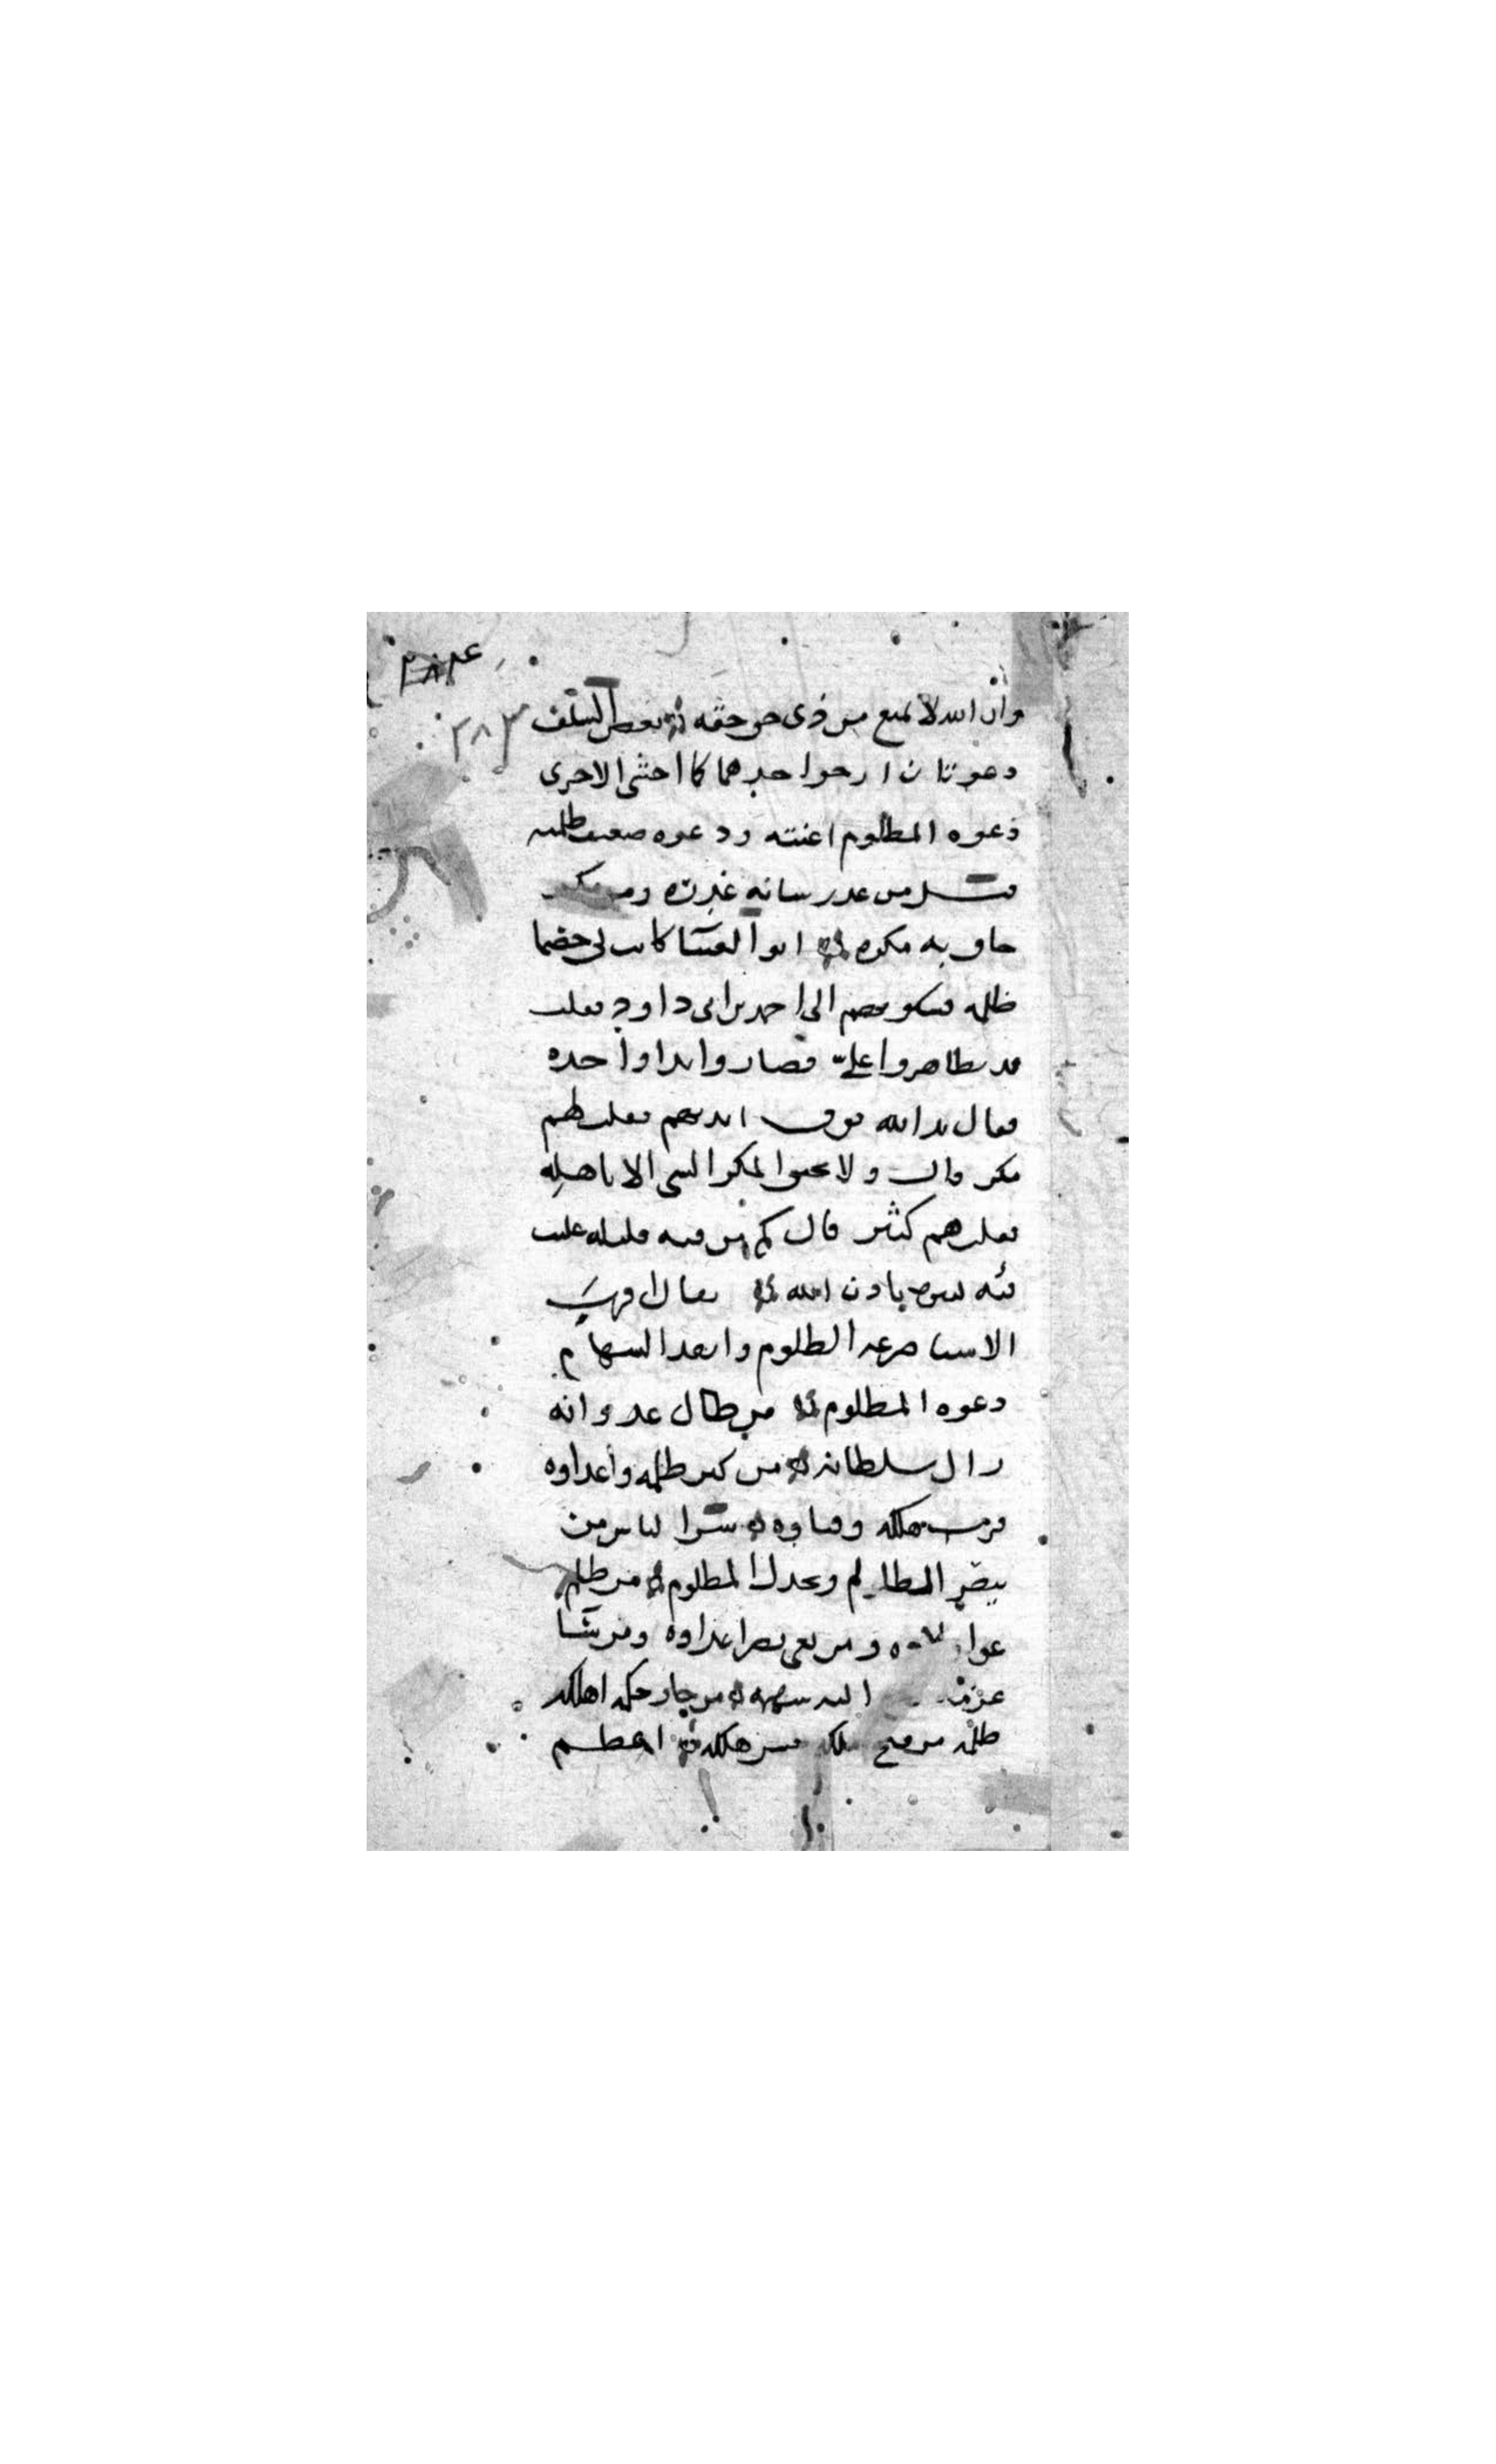 ٢٨٣
٢٨٣
وان الله لا يمنع من ذي حق حقه بعض السلف
دعوتان ارجوا حدهما كما اخشى الاخرى
دعوه المظلوم اعنته ودعوه ضعيف ظلمته
قيل من غدر شانه غدره ومن مكر
حاق به مكره ابو العينا كان لي خصما
ظلمه فشكوتهم الى احمد بن ابي داود فقلت
قد تظاهروا علي فصاروا يدا واحده
فقال يد الله فوق ايديهم فقلت لهم
مكر قال ولا يحيق المكر السي الا باهله
فقلت هم كثير قال كم من فئه قليله غلبت
فئه كثيره باذن الله يقال اقرب
الاشيا صرعه الظلوم وابعد السهام
دعوه المظلوم من طال عدوانه
زال سلطانه من كثر ظلمه واعداوه
قرب هلكه وفناوه شر الناس من
ينصر الظالم ويخذل المظلوم من ظلم
ومن بغى نصر اعداوه ومن
اليه سهمه من جار حكمه اهلكه
ظلمه من قبح ملكه حسن هلكه اعظم